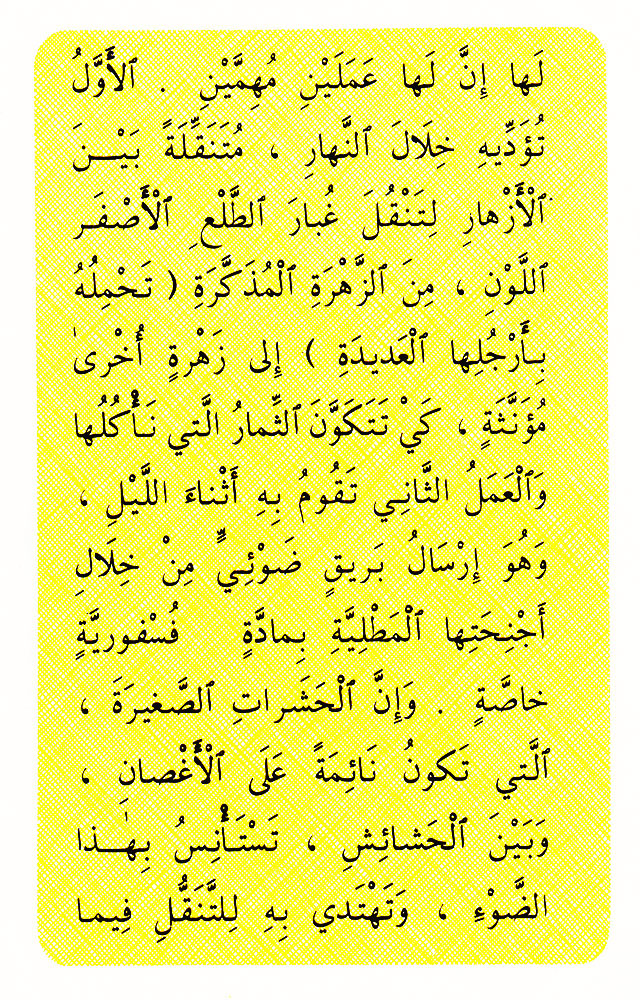 لَها إِنَّ لَها عَمَلَيْنِ مُهِمَّيْنِ . ٱلأَوَّلُ
تُؤَدِّيهِ خِلَالَ ٱلنَّهارِ ، مُتَنَقِّلَةً بَيْـــنَ
ٱلْأَزْهارِ لِتَنْقُلَ غُبارَ ٱلطَّلْعِ ٱلْأَصْفَـرِ
ٱللَّوْنِ ، مِنَ ٱلزَّهْرَةِ ٱلْمُذَكَّرَةِ ( تَحْمِلُهُ
بِأَرْجُلِها ٱلْعَديدَةِ ) إِلى زَهْرةٍ أُخْرىٰ
مُؤَنَّثَةٍ ، كَيْ تَتَكَوَّنَ ٱلثِّمارُ الَّتي نَأْكُلُها
وَٱلْعَمَلُ الثَّانِي تَقُومُ بِهِ أَثْناءَ اللَّيْلِ ،
وَهُوَ إِرْسَالُ بَريقٍ ضَوْئِيٍّ مِنْ خِلَالِ
أَجْنِحَتِها ٱلْمَطْلِيَّةِ بِمادَّةٍ فُسْفوريَّةٍ
خاصَّةٍ . وَإِنَّ ٱلْحَشَراتِ ٱلصَّغيرَةَ ،
ٱلَّتي تَكونُ نَائِمَةً عَلَى ٱلْأَغْصانِ ،
وَبَيْنَ ٱلْحَشائِشِ ، تَسْتَأْنِسُ بِهٰـــذا
الضَّوْءِ ، وَتَهْتَدي بِهِ لِلتَّنَقُّلِ فِيمـا